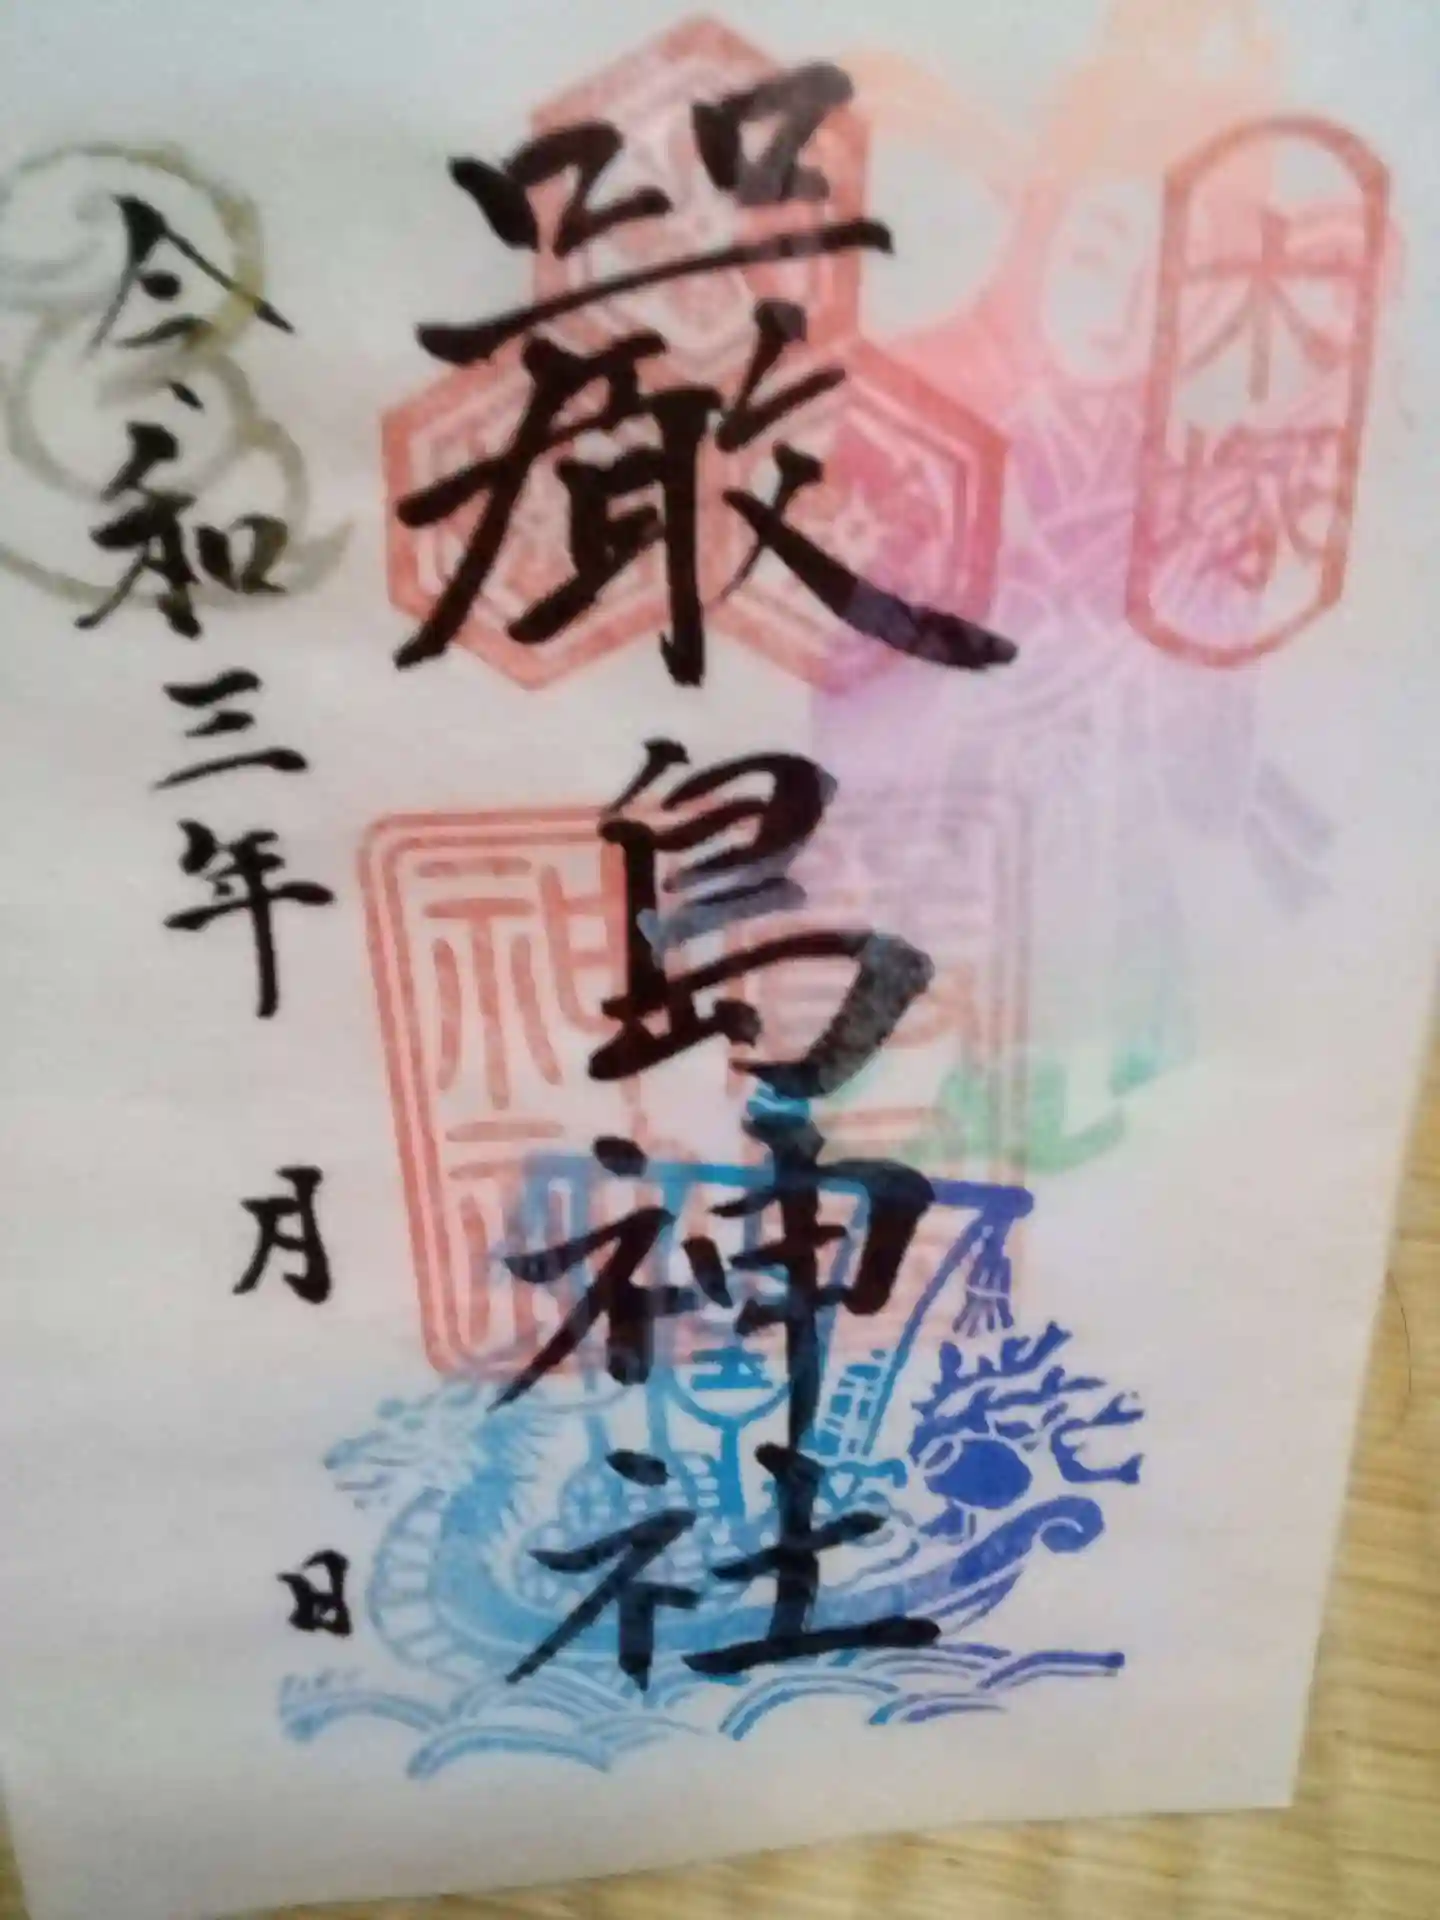 木塚
嚴島神社
令和三年 月 日